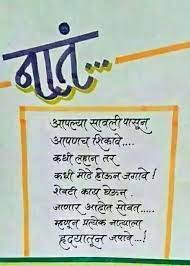 नातं...
आपल्या सावली पासून
आपणच शिकावे....
कधी लहान तर
कधी मोठे होऊन जगावे !
शेवटी काय घेऊन
जाणार आहोत सोबत.....
म्हणून प्रत्येक नात्याला
हृदयातून जपावे...!